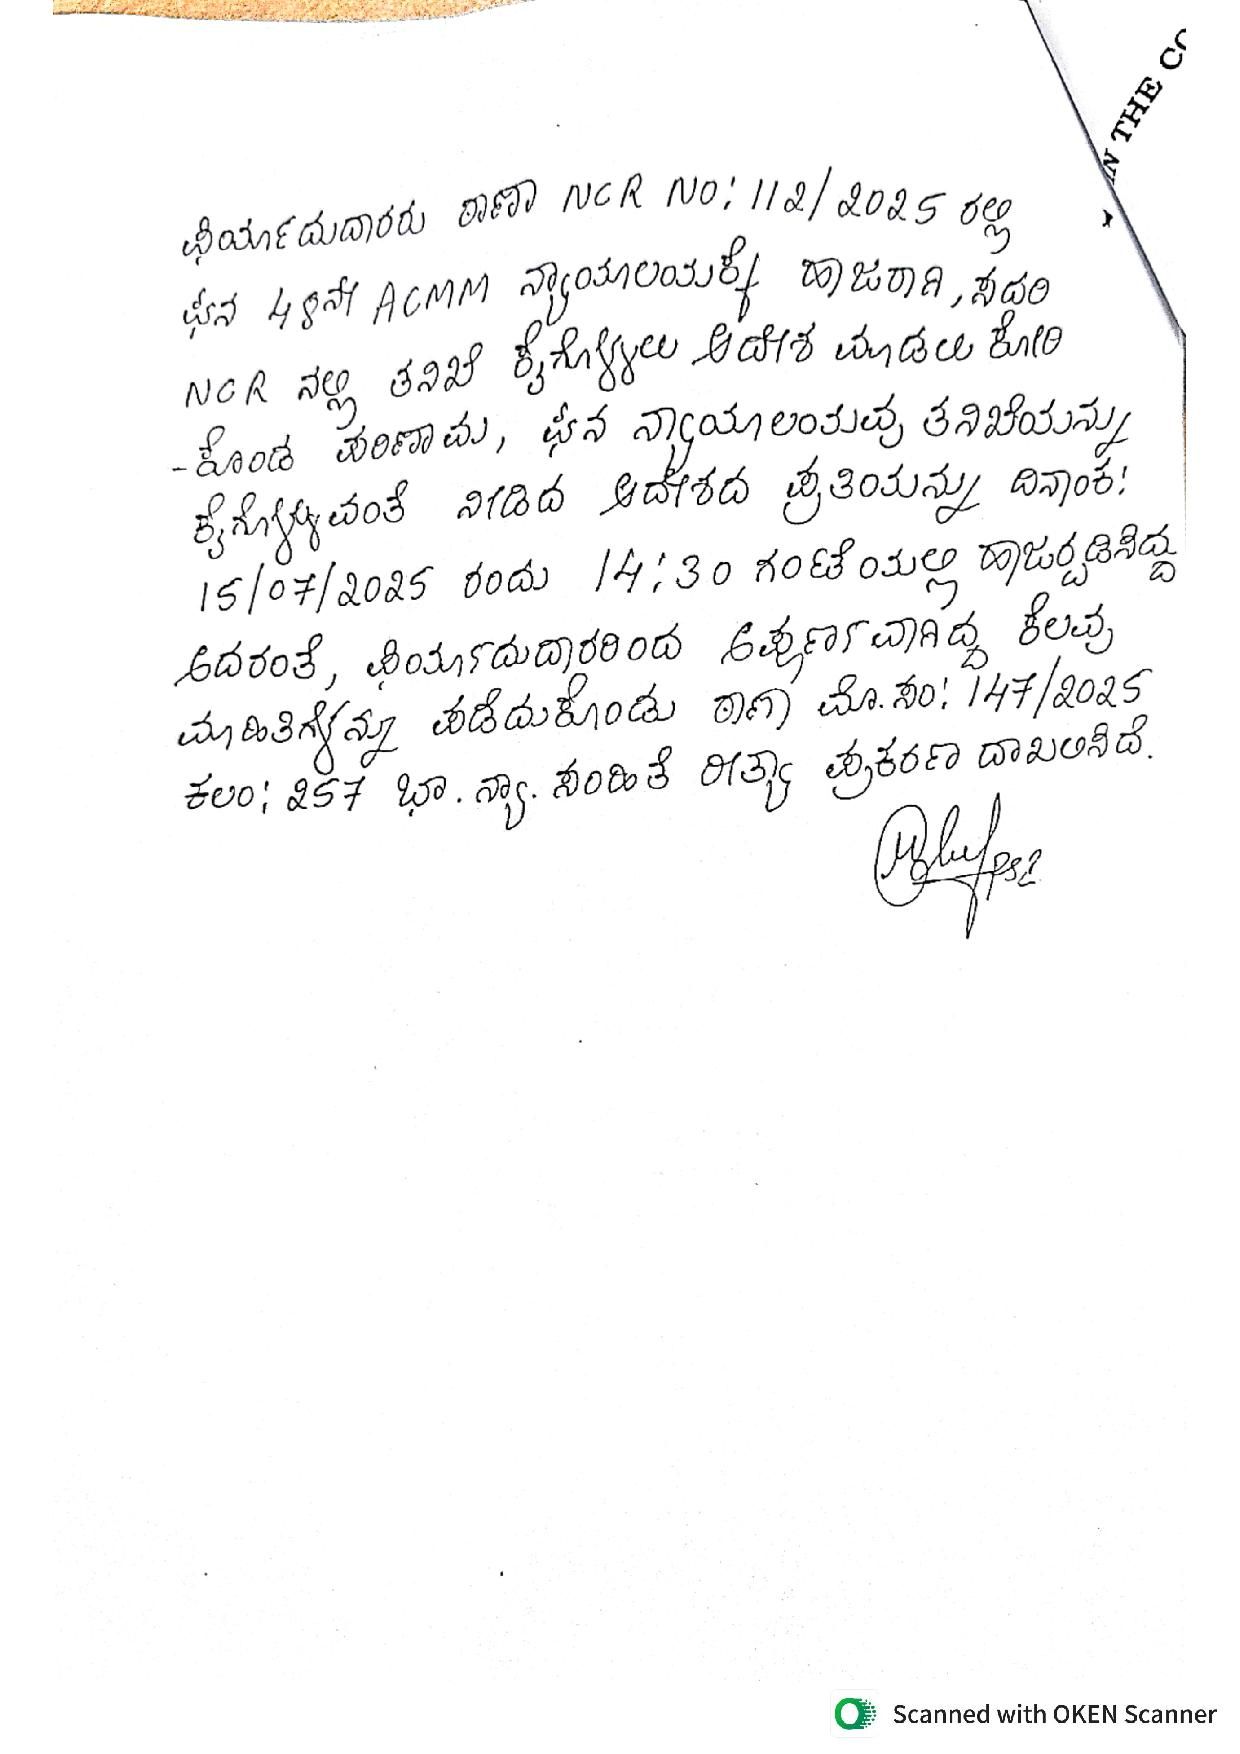 IN THE CO
ಫಿರ್ಯಾದುದಾರರು ಠಾಣಾ NCR NO: 112/2025 ರಲ್ಲಿ
ಘನ 48ನೇ ACMM ನ್ಯಾಯಾಲಯಕ್ಕೆ ಹಾಜರಾಗಿ, ಸದರಿ
NCR ನಲ್ಲಿ ತನಿಖೆ ಕೈಗೊಳ್ಳಲು ಆದೇಶ ಮಾಡಲು ಕೋರಿ
-ಕೊಂಡ ಪರಿಣಾಮ, ಘನ ನ್ಯಾಯಾಲಯವು ತನಿಖೆಯನ್ನು
ಕೈಗೊಳ್ಳುವಂತೆ ನೀಡಿದ ಆದೇಶದ ಪ್ರತಿಯನ್ನು ದಿನಾಂಕ:
15/07/2025 ರಂದು 14:30 ಗಂಟೆಯಲ್ಲಿ ಹಾಜರ್ಪಡಿಸಿದ್ದು
ಅದರಂತೆ, ಫಿರ್ಯಾದುದಾರರಿಂದ ಅಪೂರ್ಣವಾಗಿದ್ದ ಕೆಲವು
ಮಾಹಿತಿಗಳನ್ನು ಪಡೆದುಕೊಂಡು ಠಾಣಾ ಮೊ.ಸಂ: 147/2025
ಕಲಂ: 257 ಭಾ. ನ್ಯಾ. ಸಂಹಿತೆ ರೀತ್ಯಾ ಪ್ರಕರಣ ದಾಖಲಿಸಿದೆ.
PSI
Scanned with OKEN Scanner